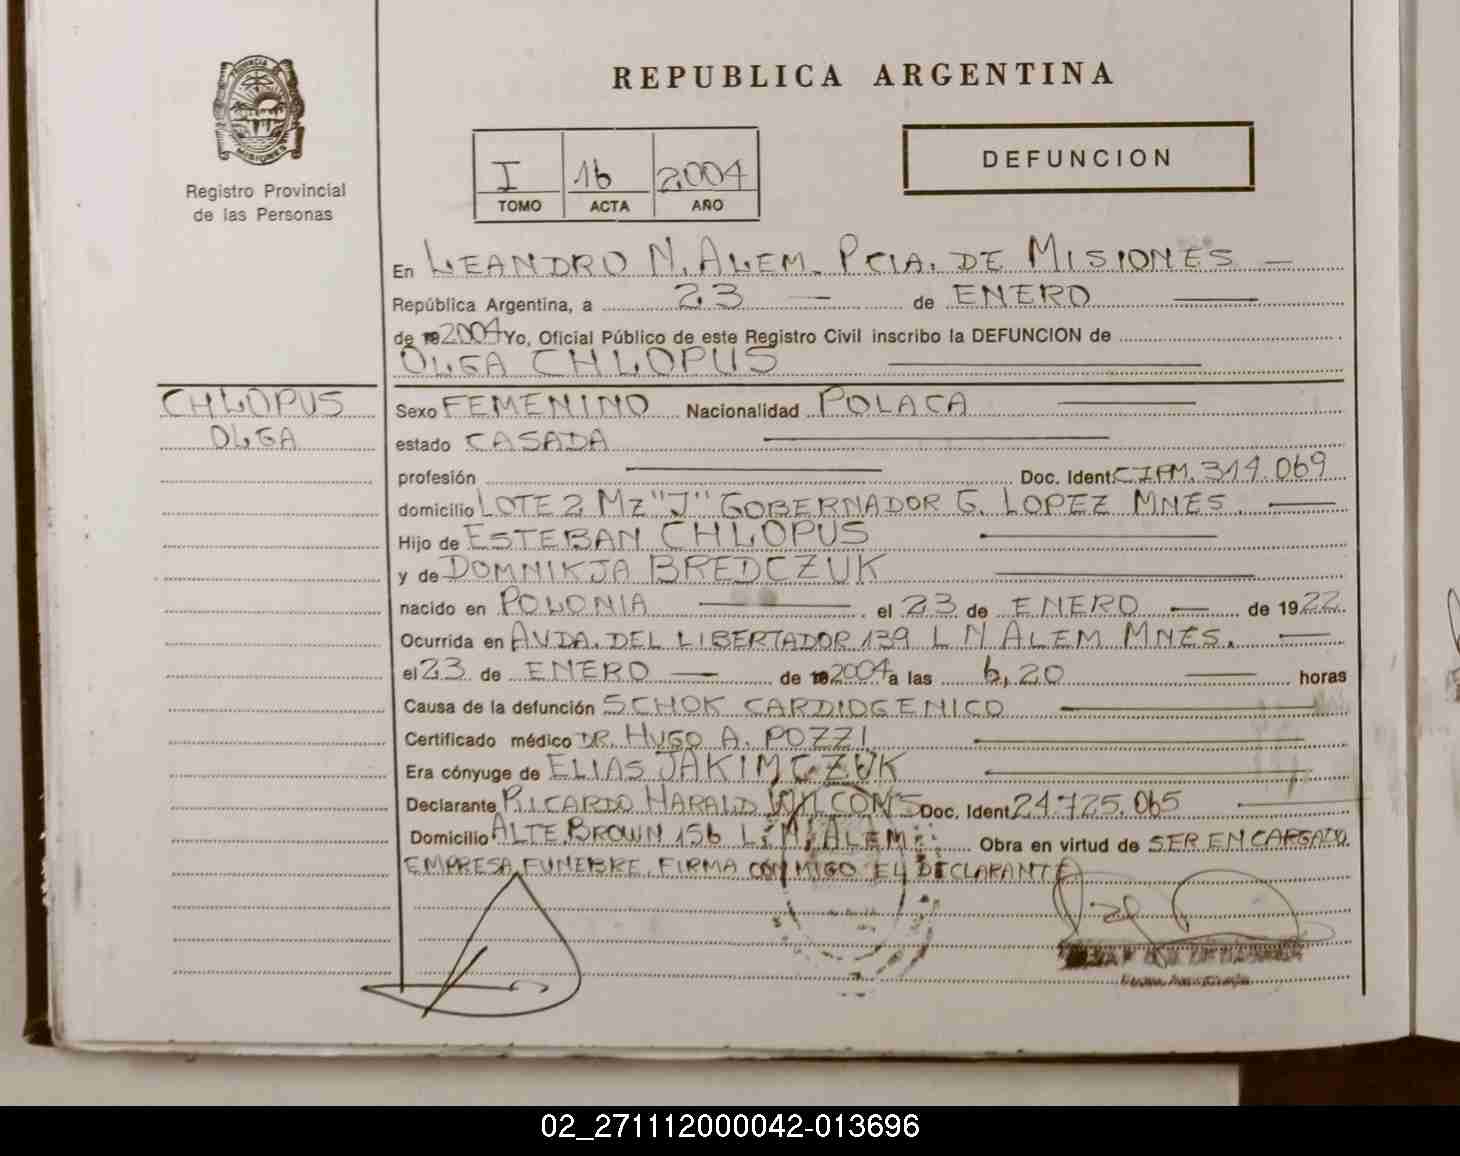 PROVINCIA DE
MISIONES
Registro Provincial
de las Personas
REPUBLICA ARGENTINA
I 16 2004
TOMO ACTA AÑO
DEFUNCION
En LEANDRO N. ALEM. PCIA. DE MISIONES
República Argentina, a 23 de ENERO
de 19 2004 Yo, Oficial Público de este Registro Civil inscribo la DEFUNCION de
OLGA CHLOPUS
CHLOPUS
OLGA
Sexo FEMENINO Nacionalidad POLACA
estado CASADA
profesión Doc. Ident. C.I.P.M. 314.069
domicilio LOTE 2 MZ "J" GOBERNADOR G. LOPEZ MNES.
Hijo de ESTEBAN CHLOPUS
y de DOMNIKJA BREDCZUK
nacido en POLONIA el 23 de ENERO de 1922
Ocurrida en AVDA. DEL LIBERTADOR 139 L N ALEM MNES.
el 23 de ENERO de 19 2004 a las 6,20 horas
Causa de la defunción SCHOK CARDIOGENICO
Certificado médico DR. HUGO A. POZZI
Era cónyuge de ELIAS JAKIMCZUK
Declarante RICARDO HARALD Doc. Ident. 24.725.065
Domicilio ALTE. BROWN 156 L. N. ALEM Obra en virtud de SER ENCARGADO
EMPRESA FUNEBRE. FIRMA CONMIGO EL DECLARANTE
02_271112000042-013696